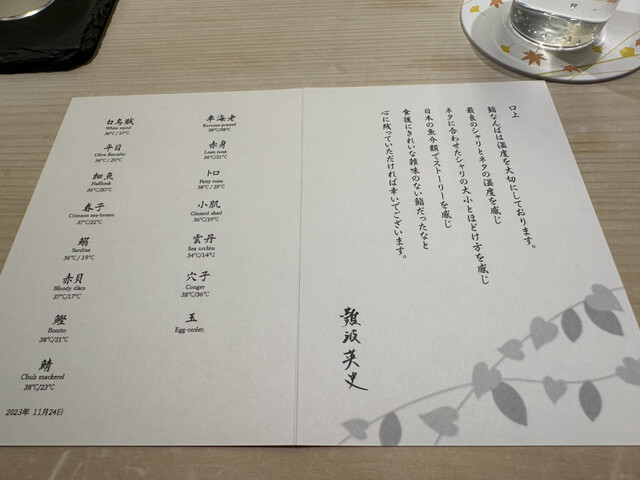 白烏賊
White squid
36℃/17℃
平目
Olive flounder
36℃/20℃
細魚
Halfbeak
36℃/20℃
春子
Crimson sea-bream
37℃/22℃
鰯
Sardine
36℃/19℃
赤貝
Bloody clam
37℃/17℃
鰹
Bonito
38℃/21℃
鯖
Chub mackerel
38℃/23℃
2023年 11月24日
車海老
Kuruma prawn
38℃/38℃
赤身
Lean tuna
36℃/21℃
トロ
Fatty tuna
38℃/25℃
小肌
Gizzard shad
36℃/19℃
雲丹
Sea urchin
34℃/14℃
穴子
Conger
38℃/36℃
玉
Egg-omlet
口上
鮨なんばは温度を大切にしております。
最良のシャリとネタの温度を感じ
ネタに合わせたシャリの大小とほどけ方を感じ
日本の魚介類でストーリーを感じ
食後にきれいな雑味のない鮨だったなと
心に残っていただければ幸いでございます。
難波英史